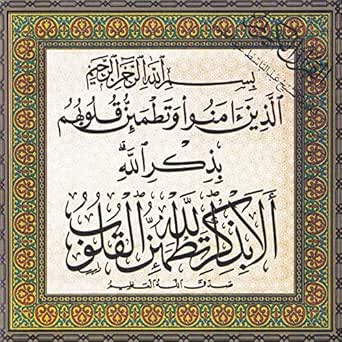 بِسْمِ ٱللَّهِ ٱلرَّحْمَٰنِ ٱلرَّحِيمِ
ٱلَّذِينَ ءَامَنُوا۟ وَتَطْمَئِنُّ قُلُوبُهُم
بِذِكْرِ ٱللَّهِ ۗ
أَلَا بِذِكْرِ ٱللَّهِ تَطْمَئِنُّ ٱلْقُلُوبُ
صدق الله العظيم